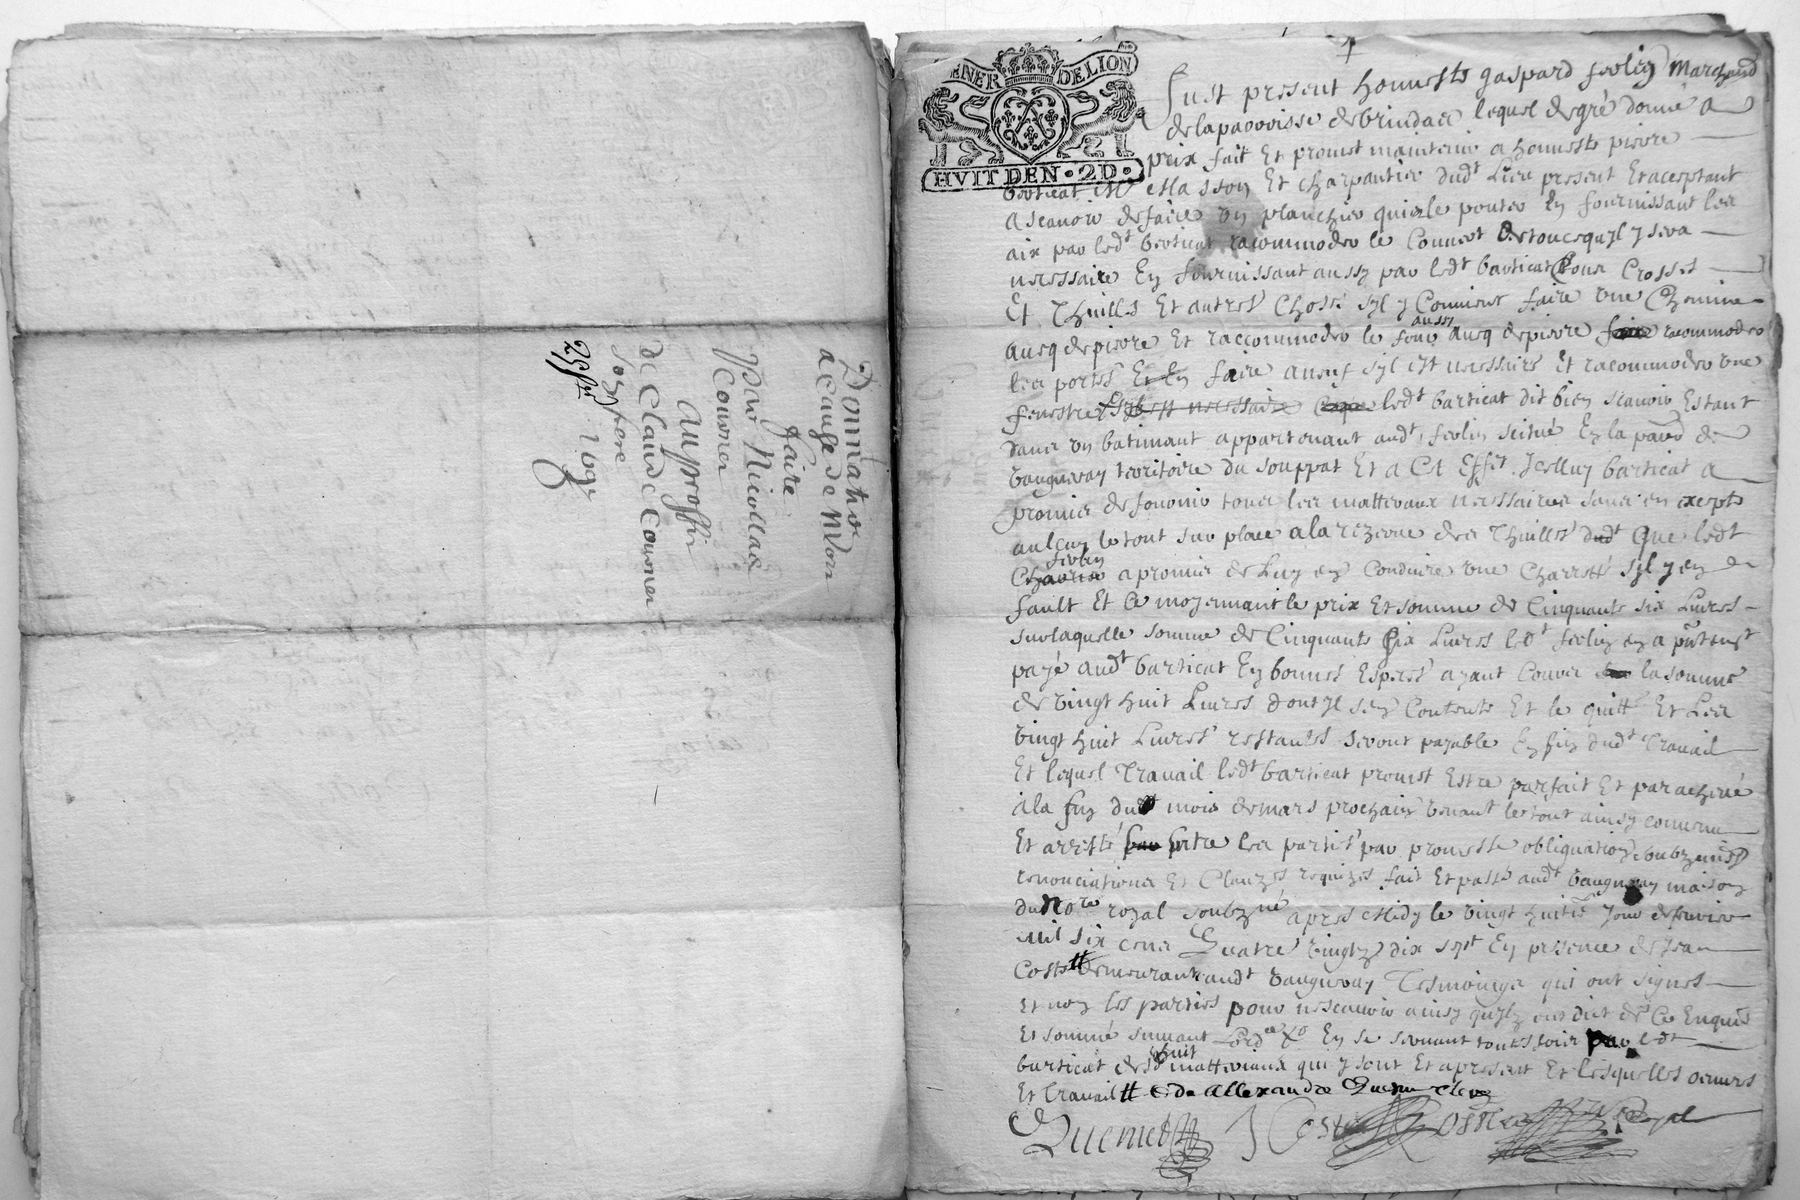 Donnation
a Cause de Mort
faite
par Nicollas
Couvrer
au proffit
de Claude Couvrer
son frere
1697
GENER DE LION
HVIT DEN · 2D ·
Fust present honneste gaspard ferlin marchand
de la parroisse de brindas lequel de gré donne a
prix fait Et promet maintenir a honneste pierre
barticat Mre Masson Et charpantier dudt Lieu present Et aceptant
a scauoir de faire un plancher qui le pouter En fournissant les
aix par ledt barticat racommoder le Couuert de tout ce quyl y sera
necessaire En fournissant aussy par ledt barticat Crosses
Et Thuilles Et autres Chose syl y Conuient faire une Chemine
aueq de pierre Et raccommoder le four aussy aueq de pierre faire racommoder
les portes Et En faire a neuf syl est necessaire Et racommoder une
fenestre syl est necessaire ledt barticat dit bien scauoir Estant
dans un batimant appartenant audt ferlin scitué En la paroe de
vaugneray territoire du souppat Et a Cet Effet Jcelluy barticat a
promis de fournir tous les mattereaux necessaires sans en exepter
aulcun le tout sur place a la rezerue des Thuilles dudt Que ledt
ferlin
a promis de Luy en Conduire une Charreté syl y en
fault Et Ce moyennant le prix Et somme de Cinquante six Liures
sur laquelle somme de Cinquante six Liures ledt ferlin en a
payé audt barticat En bonnes Espces ayant Cours la somme
de vingt huit Liures dont Jl sen Contente Et le quitte Et Les
vingt huit Liures restantes seront payable En fin dudt Trauail
Et lequel Trauail ledt barticat promet Estre parfait Et paracheué
a la fin du mois de mars prochain venant le tout ainsy conuenu
Et arresté par Entre les parties par promesse obliguation soubzmiss
renonciations Et Clauzes requizes fait Et passé audt vaugneray maison
du Nore royal soubzné apres Midy le vingt huitie Jour de feurier
Mil six cens Quatre vingtz dix sept En presence de Jean
Coste demeurant audt vaugneray Tesmoings qui ont signes
et non les parties pour ne scauoir ainsy quylz ont dict de Ce Enquis
Et sommé suiuant Lordce Xo En se seruant toutesfois par ledt
barticat desd huit matteriaux qui y sont Et a present Et lesquelles oeuures
Et trauail # Allexandre Clerc
J Coste Royal